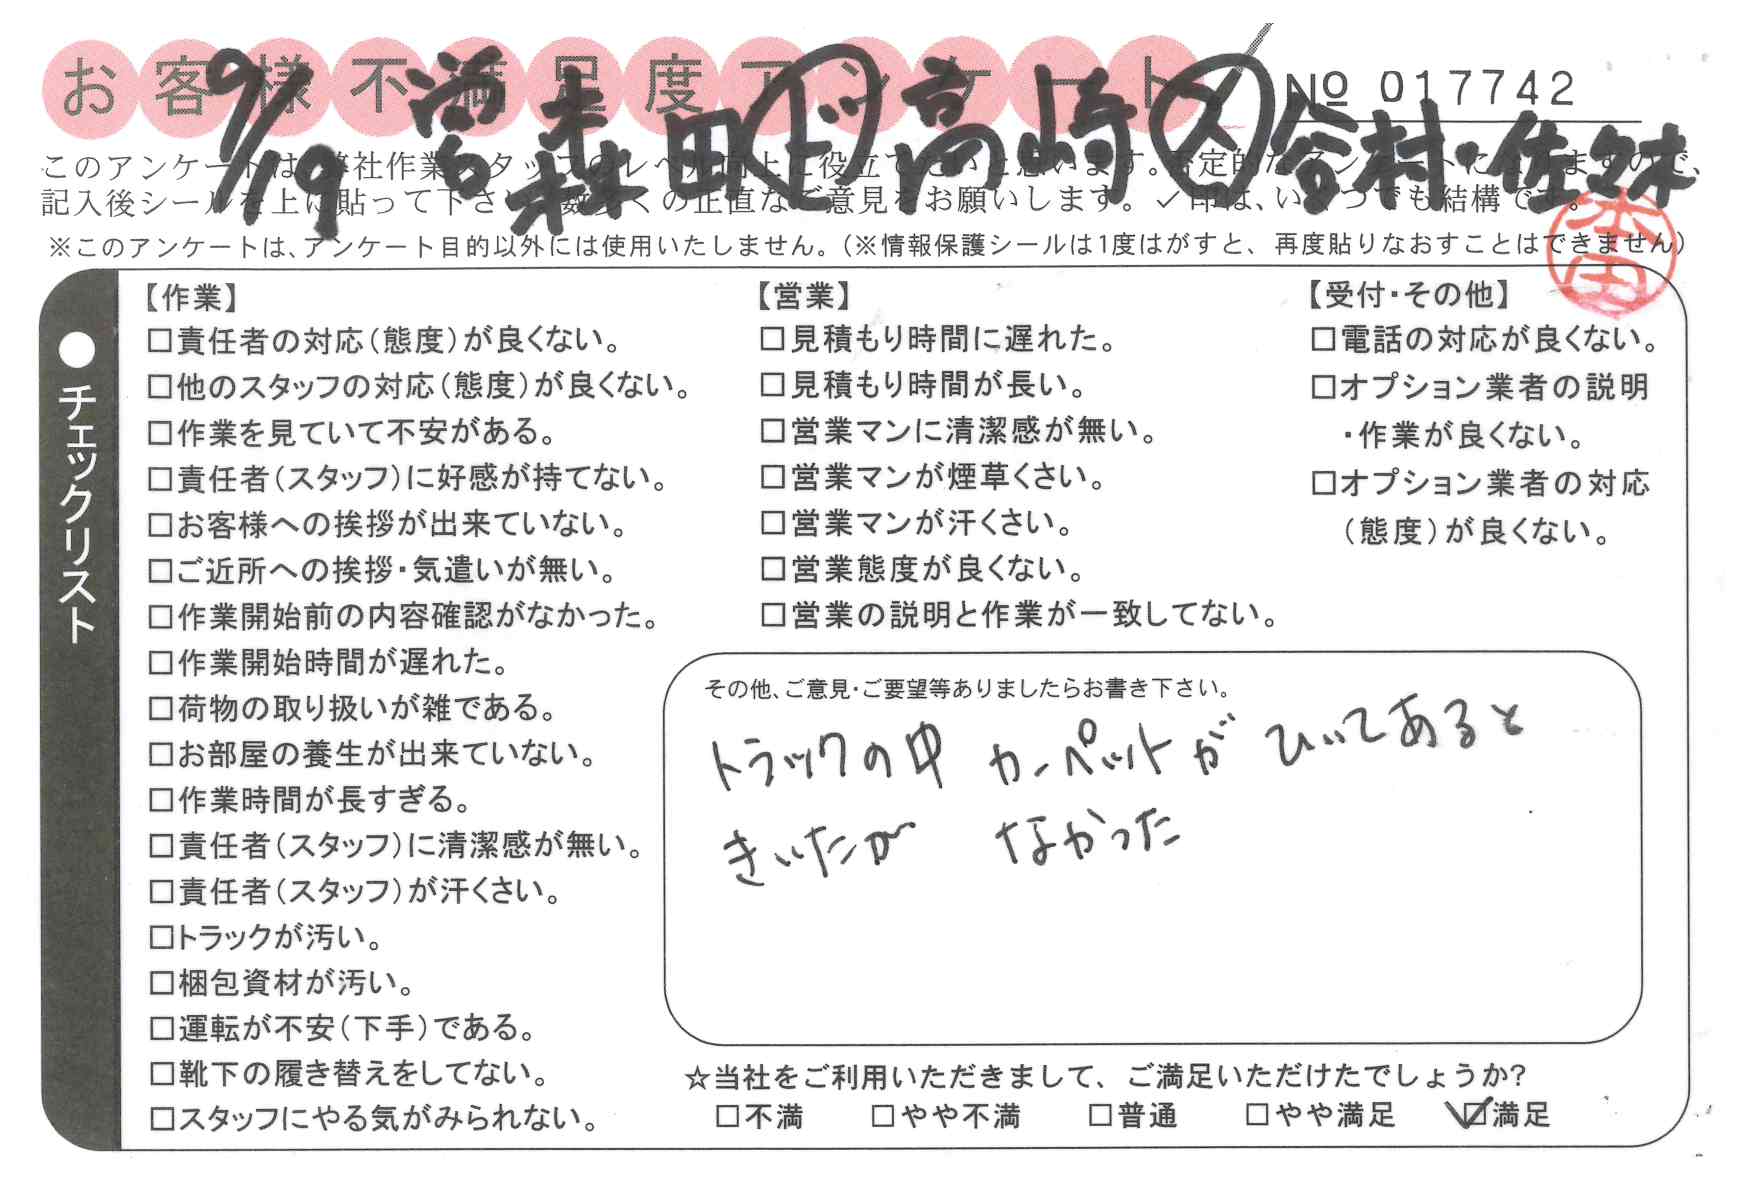 お客様不満足度アンケート
№ 017742
9/19 営 森田 ド 高崎 ス 谷村・佐々木
このアンケートは、弊社作業スタッフのレベル向上に役立てたいと思います。否定的なアンケートになりますので、
記入後シールを上に貼って下さい。数多くの正直なご意見をお願いします。✓印は、いくつでも結構です。
※このアンケートは、アンケート目的以外には使用いたしません。(※情報保護シールは1度はがすと、再度貼りなおすことはできません)
本田
●チェックリスト
【作業】
□責任者の対応(態度)が良くない。
□他のスタッフの対応(態度)が良くない。
□作業を見ていて不安がある。
□責任者(スタッフ)に好感が持てない。
□お客様への挨拶が出来ていない。
□ご近所への挨拶・気遣いが無い。
□作業開始前の内容確認がなかった。
□作業開始時間が遅れた。
□荷物の取り扱いが雑である。
□お部屋の養生が出来ていない。
□作業時間が長すぎる。
□責任者(スタッフ)に清潔感が無い。
□責任者(スタッフ)が汗くさい。
□トラックが汚い。
□梱包資材が汚い。
□運転が不安(下手)である。
□靴下の履き替えをしてない。
□スタッフにやる気がみられない。
【営業】
□見積もり時間に遅れた。
□見積もり時間が長い。
□営業マンに清潔感が無い。
□営業マンが煙草くさい。
□営業マンが汗くさい。
□営業態度が良くない。
□営業の説明と作業が一致してない。
【受付・その他】
□電話の対応が良くない。
□オプション業者の説明
・作業が良くない。
□オプション業者の対応
(態度)が良くない。
その他、ご意見・ご要望等ありましたらお書き下さい。
トラックの中 カーペットが ひいてあると
きいたが なかった
☆当社をご利用いただきまして、ご満足いただけたでしょうか?
□不満 □やや不満 □普通 □やや満足 ☑満足